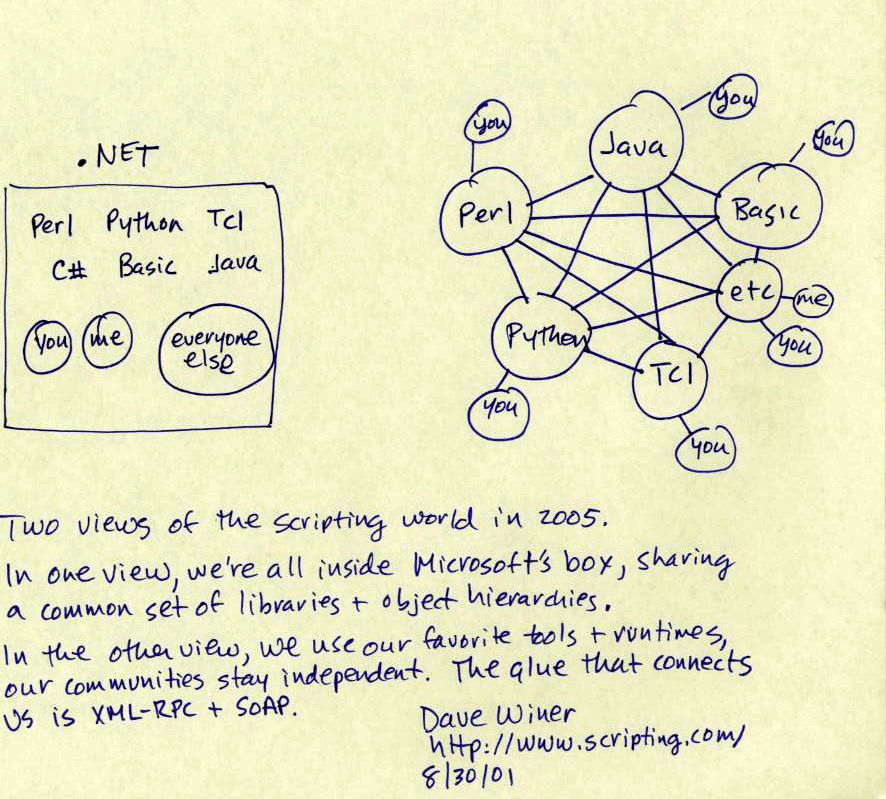 .NET
Perl Python Tcl
C# Basic Java
you me everyone else
you
you
you
Java
Perl
Basic
etc
me
you
Python
Tcl
you
you
Two views of the scripting world in 2005.
In one view, we're all inside Microsoft's box, sharing
a common set of libraries + object hierarchies.
In the other view, we use our favorite tools + runtimes,
our communities stay independent. The glue that connects
us is XML-RPC + SOAP.
Dave Winer
http://www.scripting.com/
8/30/01